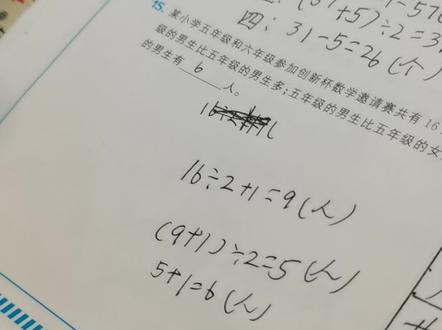 (31+5)÷2=3
四: 31-5=26(个)
15. 某小学五年级和六年级参加创新杯数学邀请赛共有 16
级的男生比五年级的男生多;五年级的男生比五年级的女
的男生有 6 人。
16÷2+1=9(人)
(9+1)÷2=5(人)
5+1=6(人)